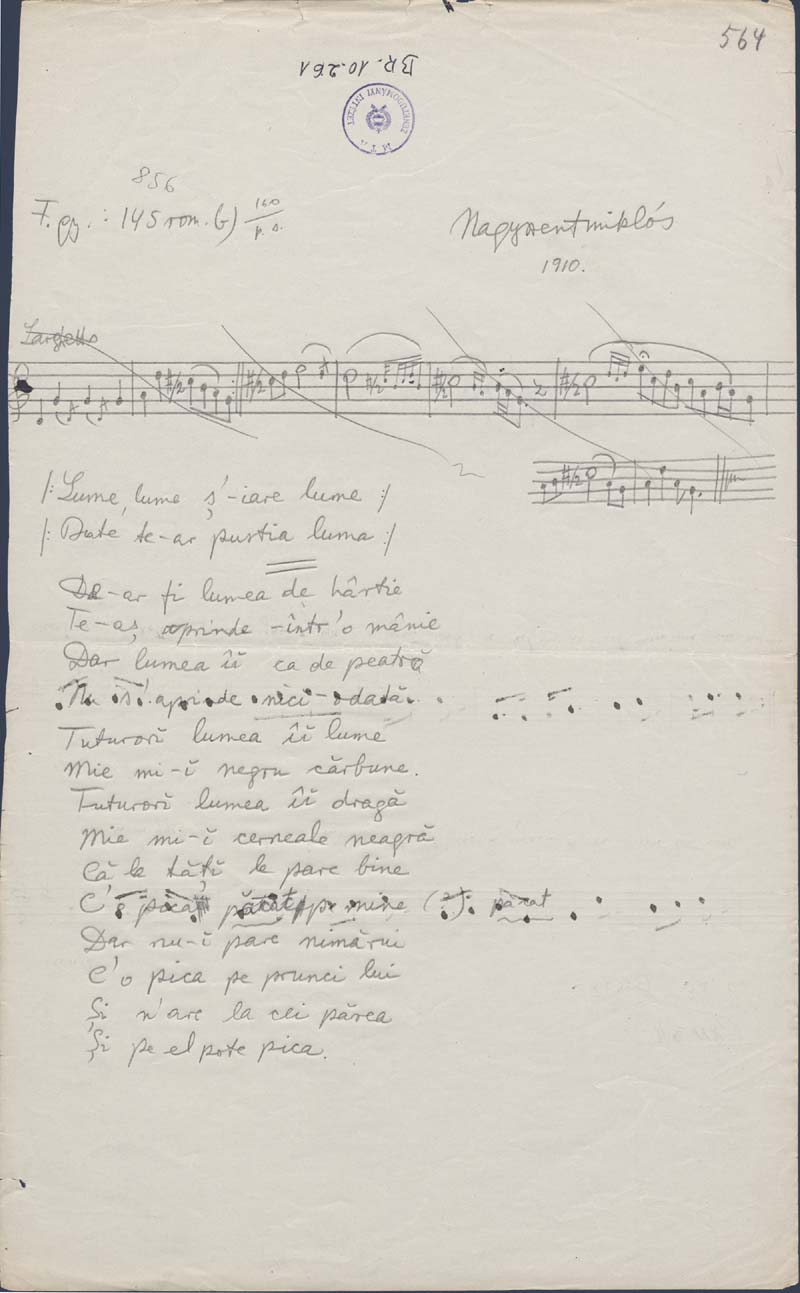 564
BR. 10.261
ZENETUDOMÁNYI INTÉZET
M T A
856
F. gy.: 145 rom. b) 160 / p. s.
Nagyszentmiklós
1910.
Larghetto
/: Lume, lume ș'-iare lume :/
/: Bate te-ar pustia luma :/
De-ar fi lumea de hârtie
Te-aș aprinde -într'o mânie
Dar lumea îĭ ca de peatră
Nu s'aprinde nici-odată.
Tuturorĭ lumea îĭ lume
Mie mi-ĭ negru cărbune.
Tuturorĭ lumea îĭ dragă
Mie mi-ĭ cerneale neagră
Că la tățĭ le pare bine
C'o pica păcat pe mine (?) păcat
Dar nu-ĭ pare nimărui
C'o pica pe prunci lui
Și n'are la cei părea
Și pe el pote pica.